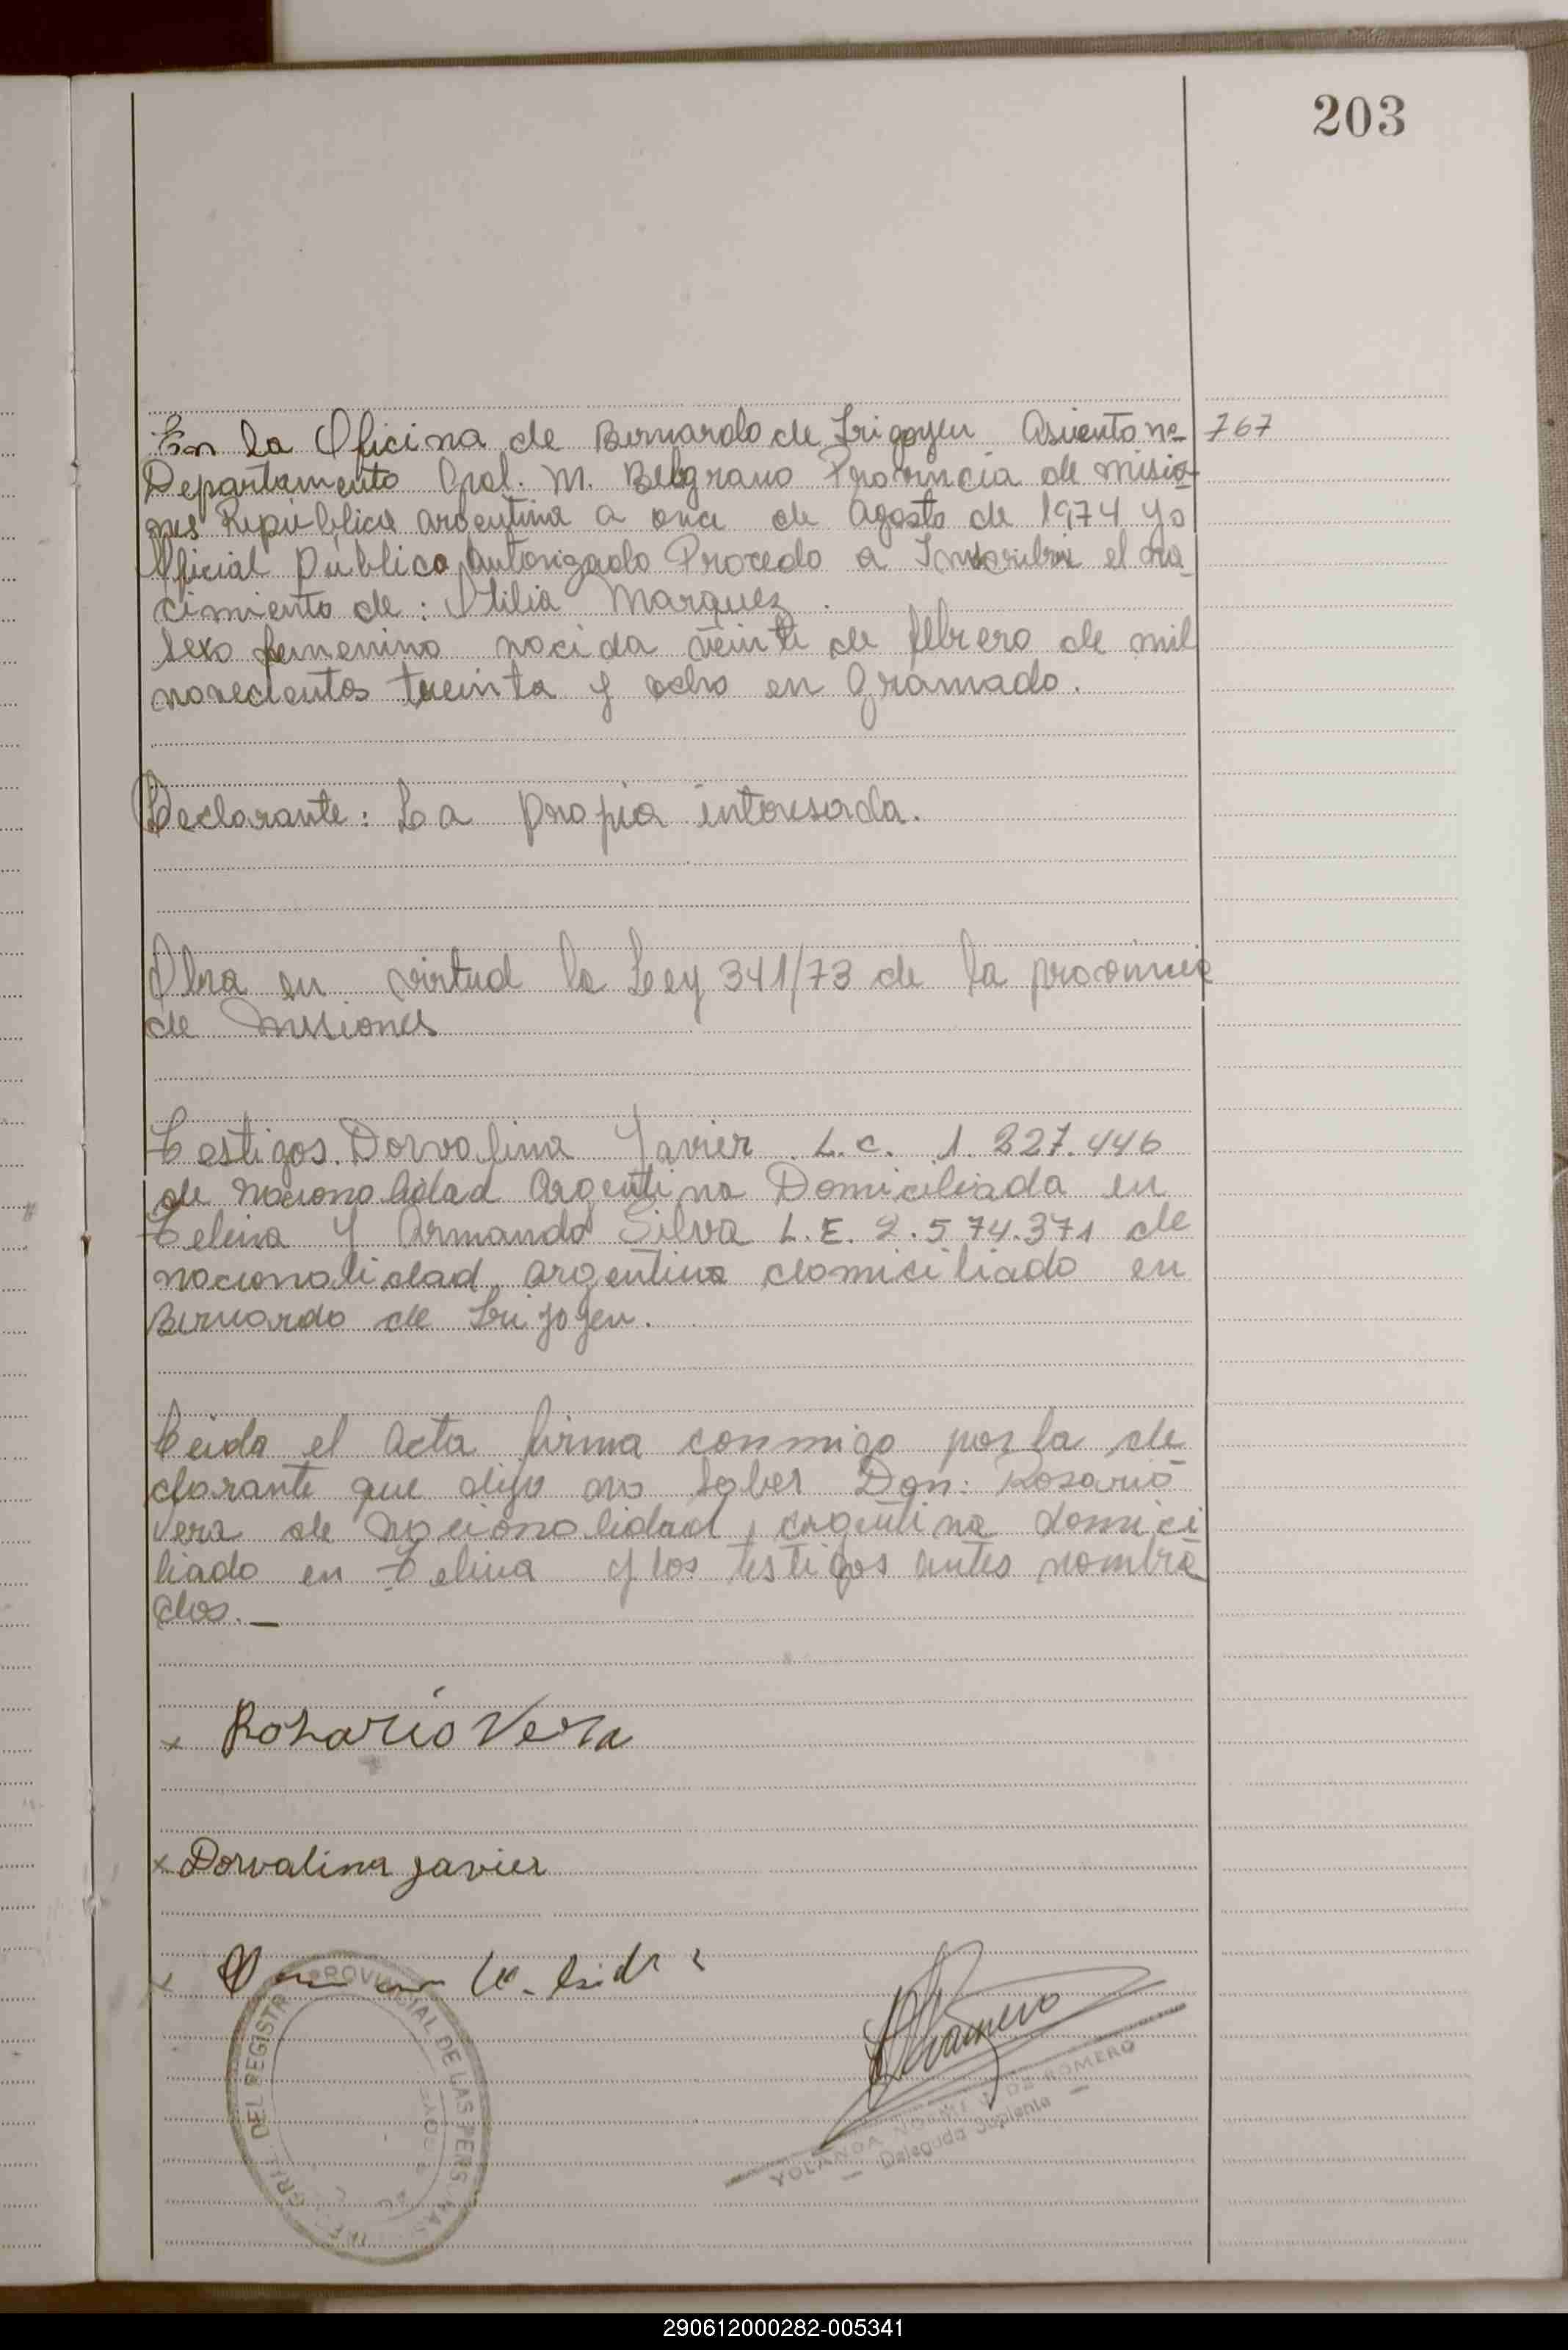 203
En la Oficina de Bernardo de Irigoyen Asiento nº 767
Departamento Gral. M. Belgrano Provincia de Misio-
nes República Argentina a once de Agosto de 1974 yo
Oficial Público Autorizado Procedo a Inscribir el na-
cimiento de: Otilia Marquez.
Sexo femenino nacida veinte de febrero de mil
novecientos treinta y ocho en Gramado.
Declarante: La propia interesada.
Obra en virtud la Ley 341/73 de la provincia
de Misiones
Testigos. Dorvalina Javier L.C. 1.827.446
de nacionalidad Argentina Domiciliada en
y Armando Silva L.E. 2.574.371 de
nacionalidad argentina domiciliado en
Bernardo de Irigoyen.
Leida el Acta firma conmigo por la de
clarante que dijo no saber Don: Rosario
Vera de nacionalidad argentina domici
liado en y los testigos antes nombra
dos.—
x Rosario Vera
x Dorvalina Javier
x
DEL REGISTRO PROVINCIAL DE LAS PERSONAS
YOLANDA NOEMI J. DE ROMERO
— Delegada Suplente —
290612000282-005341